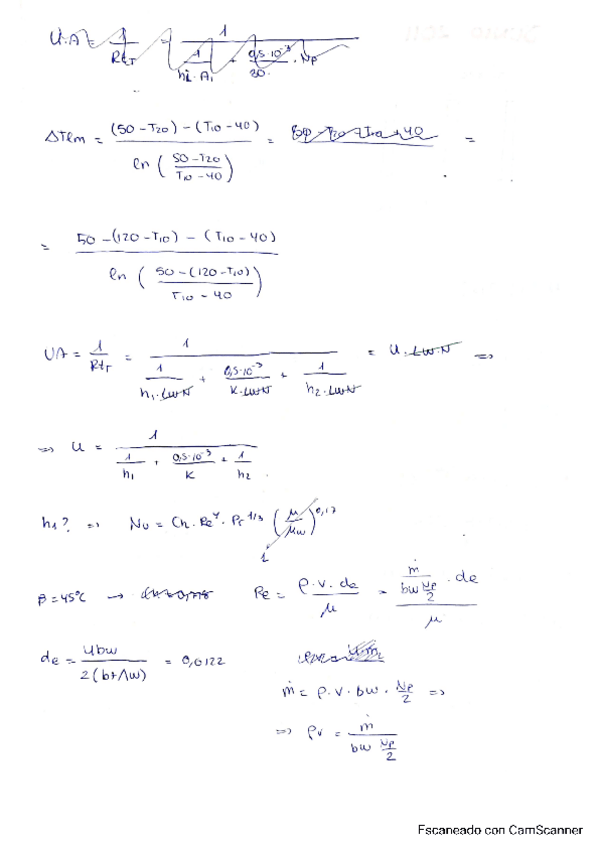 U·A = 1/RtT = 1/(1/(hi·Ai) + 0,5·10⁻³/30 · Np)
ΔTlm = ((50 - T20) - (T10 - 40))/(ln((50 - T20)/(T10 - 40))) = 50 - T20 - T10 + 40 =
= (50 - (120 - T10) - (T10 - 40))/(ln((50 - (120 - T10))/(T10 - 40)))
UA = 1/RtT = 1/(1/(h1·LwN) + 0,5·10⁻³/(K·LwN) + 1/(h2·LwN)) = U·LwN ⇒
⇒ U = 1/(1/h1 + 0,5·10⁻³/K + 1/h2)
h1? ⇒ Nu = Ch·Re^y·Pr^1/3 (μ/μw)^0,17
1
β = 45ºC → Re = ρ·v·de/μ = (ṁ/(bw Np/2) · de)/μ
de = 4bw/(2(b+Λw)) = 0,0122
ṁ = ρ·v·bw·Np/2 ⇒
⇒ ρv = ṁ/(bw Np/2)
Escaneado con CamScanner